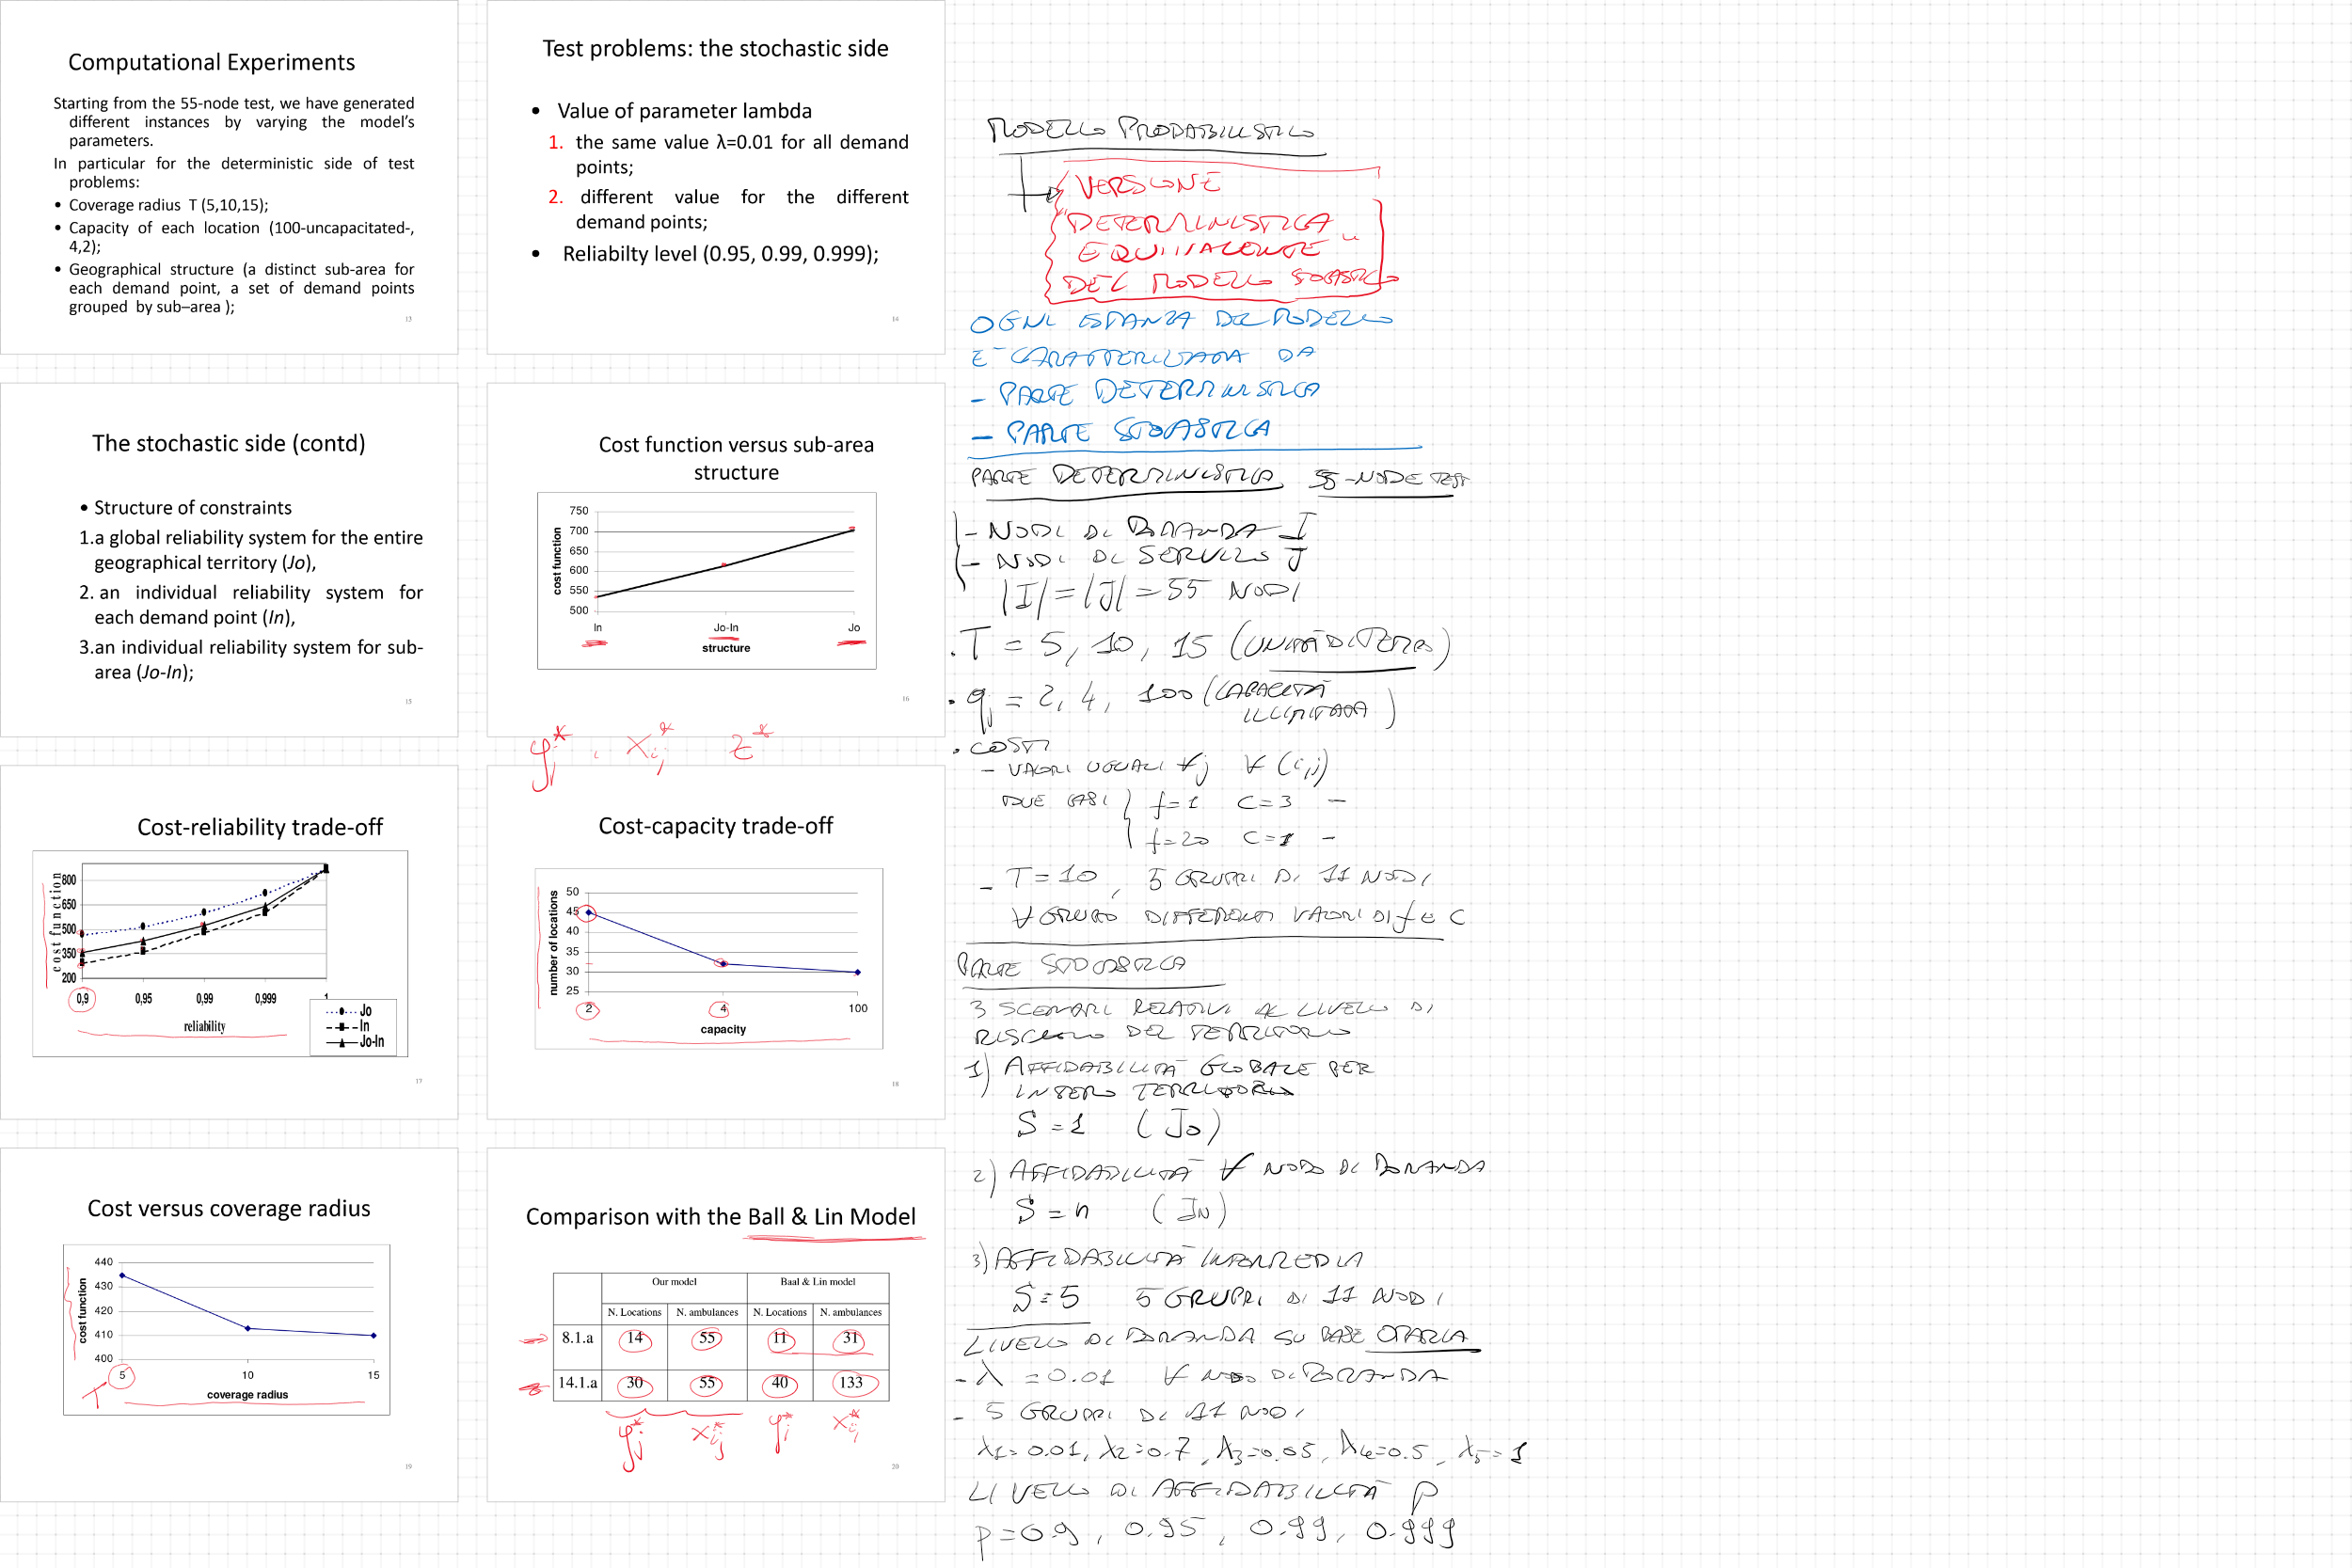 Computational Experiments
Starting from the 55-node test, we have generated
different instances by varying the model's
parameters.
In particular for the deterministic side of test
problems:
• Coverage radius T (5,10,15);
• Capacity of each location (100-uncapacitated-,
4,2);
• Geographical structure (a distinct sub-area for
each demand point, a set of demand points
grouped by sub–area );
13
Test problems: the stochastic side
• Value of parameter lambda
1. the same value λ=0.01 for all demand
points;
2. different value for the different
demand points;
• Reliabilty level (0.95, 0.99, 0.999);
14
The stochastic side (contd)
• Structure of constraints
1.a global reliability system for the entire
geographical territory (Jo),
2. an individual reliability system for
each demand point (In),
3.an individual reliability system for sub-
area (Jo-In);
15
Cost function versus sub-area
structure
cost function
750
700
650
600
550
500
In Jo-In Jo
structure
16
yj* , xij* z*
Cost-reliability trade-off
cost function
800
650
500
350
200
0,9 0,95 0,99 0,999 1
reliability
Jo
In
Jo-In
17
Cost-capacity trade-off
number of locations
50
45
40
35
30
25
2 4 100
capacity
18
Cost versus coverage radius
cost function
440
430
420
410
400
5 10 15
T
coverage radius
19
Comparison with the Ball & Lin Model
Our model Baal & Lin model
N. Locations N. ambulances N. Locations N. ambulances
8.1.a 14 55 11 31
14.1.a 30 55 40 133
yj* xij* yj* xij*
20
MODELLO PROBABILISTICO
VERSIONE
"DETERMINISTICA
EQUIVALENTE"
DEL MODELLO STOCASTICO
OGNI ISTANZA DEL MODELLO
E' CARATTERIZZATA DA
- PARTE DETERMINISTICA
- PARTE STOCASTICA
PARTE DETERMINISTICA 55-NODE TEST
- NODI DI DOMANDA I
- NODI DI SERVIZIO J
|I|=|J|=55 NODI
. T = 5, 10, 15 (UNITÀ DI TEMPO)
. qj = 2, 4, 100 (CAPACITÀ
ILLIMITATA)
. COSTI
- VALORI UGUALI ∀j ∀(i,j)
DUE CASI { f=1 C=3 -
f=20 C=1 -
- T=10, 5 GRUPPI DI 11 NODI
∀ GRUPPO DIFFERENTI VALORI DI f E C
PARTE STOCASTICA
3 SCENARI RELATIVI AL LIVELLO DI
RISCHIO DEL TERRITORIO
1) AFFIDABILITÀ GLOBALE PER
INTERO TERRITORIO
S=1 (Jo)
2) AFFIDABILITÀ ∀ NODO DI DOMANDA
S=n (In)
3) AFFIDABILITÀ INTERMEDIA
S=5 5 GRUPPI DI 11 NODI
LIVELLO DI DOMANDA SU BASE ORARIA
- λ = 0.01 ∀ NODO DI DOMANDA
- 5 GRUPPI DI 11 NODI
λ1=0.01, λ2=0.7, λ3=0.05, λ4=0.5, λ5=1
LIVELLO DI AFFIDABILITÀ p
p=0.9, 0.95, 0.99, 0.999